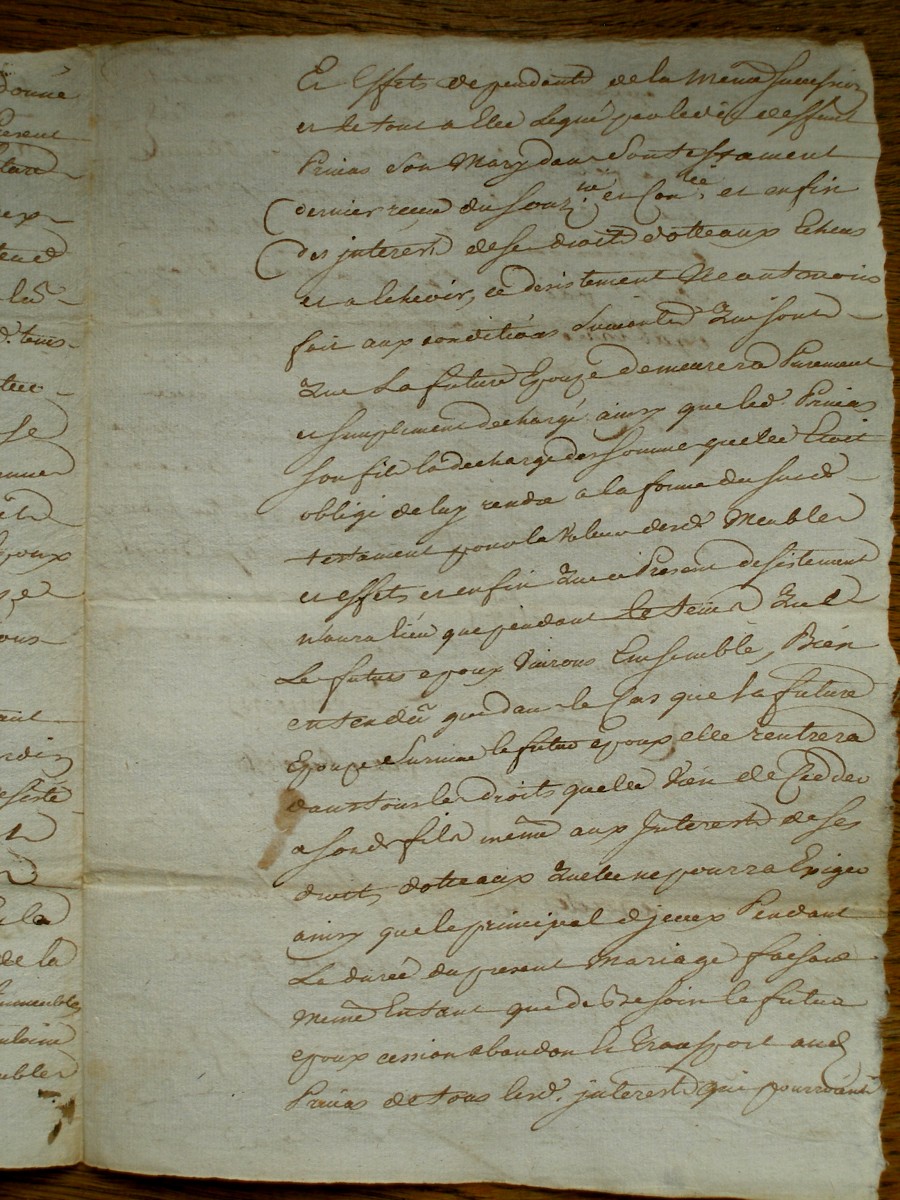 Et Effets dependants de la meme succession
et de tout a Elle Legué par led. deffunt
Prinas Son Mary dans Son testament
dernier receu du Souz.ne et Con.lée, et enfin
des jnterests de Ses droits dotteaux Echeus
et a Echeoir, ce desistement Neantmoins
fait aux conditions Suivantes Qui Sont
Que La future Epouze demeurera Purement
et Simplement dechargé ainsy que led. Prinas
Son fils la decharge des Sommes quelle Etoit
obligé de luy rendre a la forme du Susd.
testament pour la Valeur desd. Meubles
et effets et enfin Que ce Present desistement
n'aura lieu que pendant Le tems Que
Le future epoux Vivrons Ensemble, Bien
entendu que dans le Cas que La future
Epouze Survive le futur epoux elle rentrera
dans tous les droits quelle Vien de Cedder
a Sond. fils même aux Jnterests de Ses
droits dotteaux Quelle ne pourra Exiger
ainsy que le principal d'jceux Pendant
La durée du present Mariage faisant
Meme Entant que de Besoin le futur
epoux cession abandon et Transport aud.
Prinas de tous lesd. jnterests qui pourroient
donné
present
Se
epoux
de la
immeubles
meubles